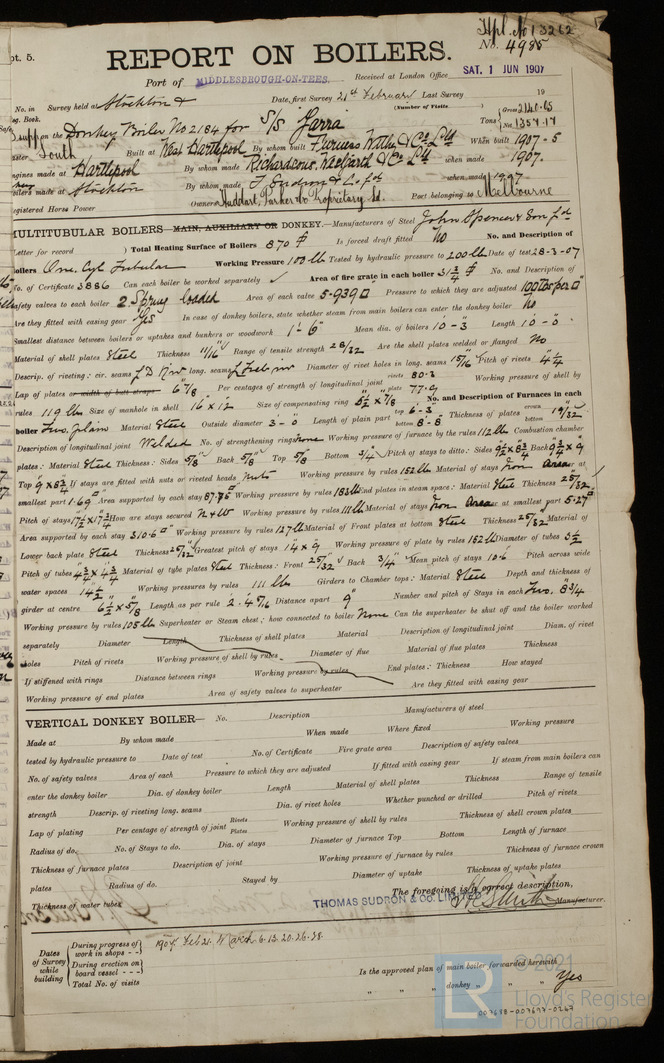 pt. 5.
Hpl. No 13262
No. 4985
REPORT ON BOILERS.
Port of MIDDLESBROUGH-ON-TEES. Received at London Office SAT. 1 JUN 1907
No. in Survey held at Stockton & Date, first Survey 21st February Last Survey 19
g. Book. (Number of Visits)
Supp on the Donkey Boiler No 2184 for S/S Yarra Tons Gross 2140.63 Net 1357.17
South Built at West Hartlepool By whom built Furness Withy & Co Ltd When built 1907-5
ngines made at Hartlepool By whom made Richardsons, Westgarth & Co Ltd when made 1907.
oilers made at Stockton By whom made T Sudron & Co Ltd when made 1907
egistered Horse Power Owners Huddart, Parker & Co Proprietary Ld. Port belonging to Melbourne
MULTITUBULAR BOILERS—MAIN, AUXILIARY OR DONKEY.—Manufacturers of Steel John Spencer & Son Ld
Letter for record ) Total Heating Surface of Boilers 870 Is forced draft fitted No No. and Description of
oilers One. Cyl Tubular Working Pressure 100 lb Tested by hydraulic pressure to 200 lb Date of test 28-3-07
No. of Certificate 3886 Can each boiler be worked separately ✓ Area of fire grate in each boiler 31 3/4 No. and Description of
safety valves to each boiler 2 Spring loaded Area of each valve 5.939 □" Pressure to which they are adjusted 100 lbs per □"
Are they fitted with easing gear Yes In case of donkey boilers, state whether steam from main boilers can enter the donkey boiler No
Smallest distance between boilers or uptakes and bunkers or woodwork 1'-6" Mean dia. of boilers 10-3 Length 10-0
Material of shell plates Steel Thickness 11/16 Range of tensile strength 28/32 Are the shell plates welded or flanged No
Descrip. of riveting: cir. seams LD Riv long. seams Diameter of rivet holes in long. seams 15/16 Pitch of rivets 4 1/4
Lap of plates or width of butt straps 6 7/8 Per centages of strength of longitudinal joint rivets 80.3 plate 77.9 Working pressure of shell by
rules 119 lb Size of manhole in shell 16 x 12 Size of compensating ring 5 1/2 x 7/8 No. and Description of Furnaces in each
boiler Two. plain Material Steel Outside diameter 3-0 Length of plain part top 6-3 bottom 8-8 Thickness of plates crown bottom 19/32
Description of longitudinal joint Welded No. of strengthening rings None Working pressure of furnace by the rules 112 lb Combustion chamber
plates: Material Steel Thickness: Sides 5/8 Back 5/8 Top 5/8 Bottom 3/4 Pitch of stays to ditto: Sides 9 1/2 x 8 3/4 Back 9 3/4 x 9
Top 9 x 8 3/4 If stays are fitted with nuts or riveted heads nuts Working pressure by rules 152 lb Material of stays Iron Area at
smallest part 1.69 Area supported by each stay 87.75 Working pressure by rules 183 lb End plates in steam space: Material Steel Thickness 25/32
Pitch of stays 17 1/2 x 17 3/4 How are stays secured N & W Working pressure by rules 111 lb Material of stays Iron Area at smallest part 5.27
Area supported by each stay 310.6 Working pressure by rules 127 lb Material of Front plates at bottom Steel Thickness 25/32 Material of
Lower back plate Steel Thickness 25/32 Greatest pitch of stays 14 x 9 Working pressure of plate by rules 152 lb Diameter of tubes 3 1/2
Pitch of tubes 4 3/4 x 4 3/4 Material of tube plates Steel Thickness: Front 25/32 Back 3/4 Mean pitch of stays 10.6 Pitch across wide
water spaces 14 1/2 Working pressures by rules 111 lb Girders to Chamber tops: Material Steel Depth and thickness of
girder at centre 6 1/2 x 5/8 Length as per rule 2'.4 5/16 Distance apart 9" Number and pitch of Stays in each Two. 8 3/4
Working pressure by rules 105 lb Superheater or Steam chest; how connected to boiler None Can the superheater be shut off and the boiler worked
separately Diameter Length Thickness of shell plates Material Description of longitudinal joint Diam. of rivet
holes Pitch of rivets Working pressure of shell by rules Diameter of flue Material of flue plates Thickness
If stiffened with rings Distance between rings Working pressure by rules End plates: Thickness How stayed
Working pressure of end plates Area of safety valves to superheater Are they fitted with easing gear
VERTICAL DONKEY BOILER— No. Description Manufacturers of steel
Made at By whom made When made Where fixed Working pressure
tested by hydraulic pressure to Date of test No. of Certificate Fire grate area Description of safety valves
No. of safety valves Area of each Pressure to which they are adjusted If fitted with easing gear If steam from main boilers can
enter the donkey boiler Dia. of donkey boiler Length Material of shell plates Thickness Range of tensile
strength Descrip. of riveting long. seams Dia. of rivet holes Whether punched or drilled Pitch of rivets
Lap of plating Per centage of strength of joint Rivets Plates Working pressure of shell by rules Thickness of shell crown plates
Radius of do. No. of Stays to do. Dia. of stays Diameter of furnace Top Bottom Length of furnace
Thickness of furnace plates Description of joint Working pressure of furnace by rules Thickness of furnace crown
plates Radius of do. Stayed by Diameter of uptake Thickness of uptake plates
Thickness of water tubes The foregoing is a correct description,
THOMAS SUDRON & CO. LIMITED Manufacturer.
Dates of Survey while building
During progress of work in shops - - 1907 Feb 21. March 6. 13. 20. 26. 28
During erection on board vessel - - -
Total No. of visits
Is the approved plan of main boiler forwarded herewith
" " " donkey " " " Yes
© 2021
LR Lloyd's Register
Foundation
007688-007697-0267